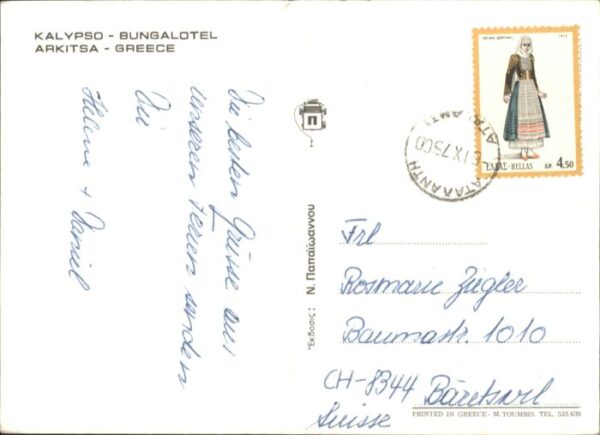 KALYPSO - BUNGALOTEL
ARKITSA - GREECE
Die besten Grüsse aus
unseren Ferien senden
Dir
Helene + Daniel
Ἔκδοσις: Ν. Παπαϊωάννου
ΑΤΑΛΑΝΤΗ
ΑΤΑΛΑΝΤΗ
IX.75
ΕΛΛΑΣ-HELLAS ΔΡ. 4,50
Frl
Rosmarie Ziegler
Baumastr. 1010
CH-8344 Bäretswil
Suisse
PRINTED IN GREECE - M. TOUMBIS. TEL. 533.639